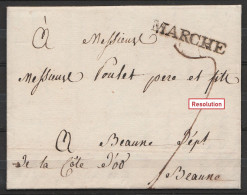 à Messieurs
MARCHE
Messieurs Poulet pere et fils
Resolution
à Beaune Dept
de la Côte d'or
Beaune